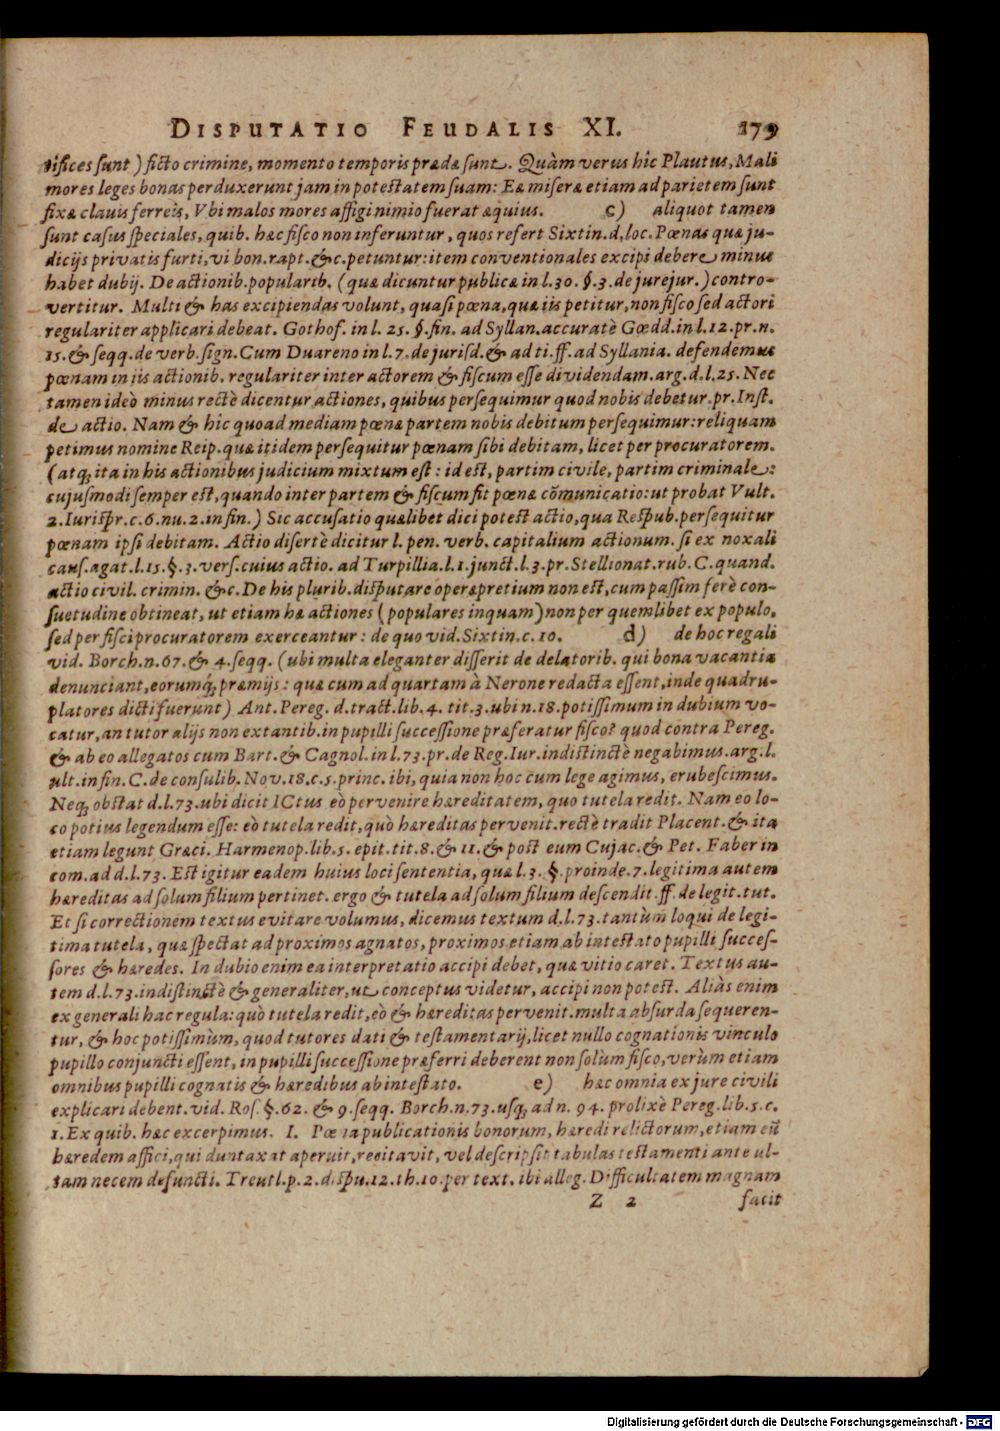 DISPUTATIO FEUDALIS XI. 179
tifices sunt) ficto crimine, momento temporis prædæ sunt. Quàm verus hîc Plautus, Mali
mores leges bonas perduxerunt jam in potestatem suam: Eæ miseræ etiam ad parietem sunt
fixæ clavis ferreis, Vbi malos mores affigi nimio fuerat æquius. c) aliquot tamen
sunt casus speciales, quib. hæc fisco non inferuntur, quos refert Sixtin. d. loc. Pœnas quæ ju-
dicijs privatis furti, vi bon. rapt. &c. petuntur: item conventionales excipi debere minus
habet dubij. De actionib. popularib. (quæ dicuntur publicæ in l. 30. §. 3. de jurejur.) contro-
vertitur. Multi & has excipiendas volunt, quasi pœna, quæ iis petitur, non fisco sed actori
regulariter applicari debeat. Gothof. in l. 25. §. fin. ad Syllan. accuratè Gœdd. in l. 12. pr. n.
15. & seqq. de verb. sign. Cum Duareno in l. 7. de jurisd. & ad ti. ff. ad Syllania. defendemus
pœnam in iis actionib. regulariter inter actorem & fiscum esse dividendam. arg. d. l. 25. Nec
tamen ideò minus rectè dicentur actiones, quibus persequimur quod nobis debetur. pr. Inst.
de actio. Nam & hic quoad mediam pœnæ partem nobis debitum persequimur: reliquam
petimus nomine Reip. quæ itidem persequitur pœnam sibi debitam, licet per procuratorem.
(atq; ita in his actionibus judicium mixtum est: id est, partim civile, partim criminale:
cujusmodi semper est, quando inter partem & fiscum fit pœnæ cõmunicatio: ut probat Vult.
2. Iurispr. c. 6. nu. 2. in fin.) Sic accusatio quælibet dici potest actio, qua Respub. persequitur
pœnam ipsi debitam. Actio disertè dicitur l. pen. verb. capitalium actionum. si ex noxali
caus. agat. l. 15. §. 3. vers. cuius actio. ad Turpillia. l. 1. junct. l. 3. pr. Stellionat. rub. C. quand.
actio civil. crimin. &c. De his plurib. disputare operæpretium non est, cum passim ferè con-
suetudine obtineat, ut etiam hæ actiones (populares inquam) non per quemlibet ex populo,
sed per fisci procuratorem exerceantur: de quo vid. Sixtin. c. 10. d) de hoc regali
vid. Borch. n. 67. & 4. seqq. (ubi multa eleganter disserit de delatorib. qui bona vacantia
denunciant, eorumq́; præmijs: quæ cum ad quartam à Nerone redacta essent, inde quadru-
platores dicti fuerunt) Ant. Pereg. d. tract. lib. 4. tit. 3. ubi n. 18. potissimum in dubium vo-
catur, an tutor alijs non extantib. in pupilli successione præferatur fisco? quod contra Pereg.
& ab eo allegatos cum Bart. & Cagnol. in l. 73. pr. de Reg. Iur. indistinctè negabimus. arg. l.
ult. in fin. C. de consulib. Nov. 18. c. 5. princ. ibi, quia non hoc cum lege agimus, erubescimus.
Neq; obstat d. l. 73. ubi dicit ICtus eò pervenire hæreditatem, quo tutela redit. Nam eo lo-
co potius legendum esse: eò tutela redit, quò hæreditas pervenit. rectè tradit Placent. & ita
etiam legunt Græci. Harmenop. lib. 5. epit. tit. 8. & 11. & post eum Cujac. & Pet. Faber in
com. ad d. l. 73. Est igitur eadem huius loci sententia, quæ l. 3. §. proinde. 7. legitima autem
hæreditas ad solum filium pertinet. ergo & tutela ad solum filium descendit. ff. de legit. tut.
Et si correctionem textus evitare volumus, dicemus textum d. l. 73. tantùm loqui de legi-
tima tutela, quæ spectat ad proximos agnatos, proximos etiam ab intestato pupilli succes-
sores & hæredes. In dubio enim ea interpretatio accipi debet, quæ vitio caret. Textus au-
tem d. l. 73. indistinctè & generaliter, ut conceptus videtur, accipi non potest. Aliàs enim
ex generali hac regula: quò tutela redit, eò & hæreditas pervenit. multa absurda sequeren-
tur, & hoc potissimùm, quod tutores dati & testamentarij, licet nullo cognationis vinculo
pupillo conjuncti essent, in pupilli successione præferri deberent non solùm fisco, verùm etiam
omnibus pupilli cognatis & hæredibus ab intestato. e) hæc omnia ex jure civili
explicari debent. vid. Ros. §. 62. & 9. seqq. Borch. n. 73. usq; ad n. 94. prolixè Pereg. lib. 5. c.
1. Ex quib. hæc excerpimus. I. Pœna publicationis bonorum, hæredi relictorum, etiam eũ
hæredem affici, qui duntaxat aperuit, recitavit, vel descripsit tabulas testamenti ante ul-
tam necem defuncti. Treutl. p. 2. dispu. 12. th. 10. per text. ibi alleg. Difficultatem magnam
Z 2 facit
Digitalisierung gefördert durch die Deutsche Forschungsgemeinschaft - DFG